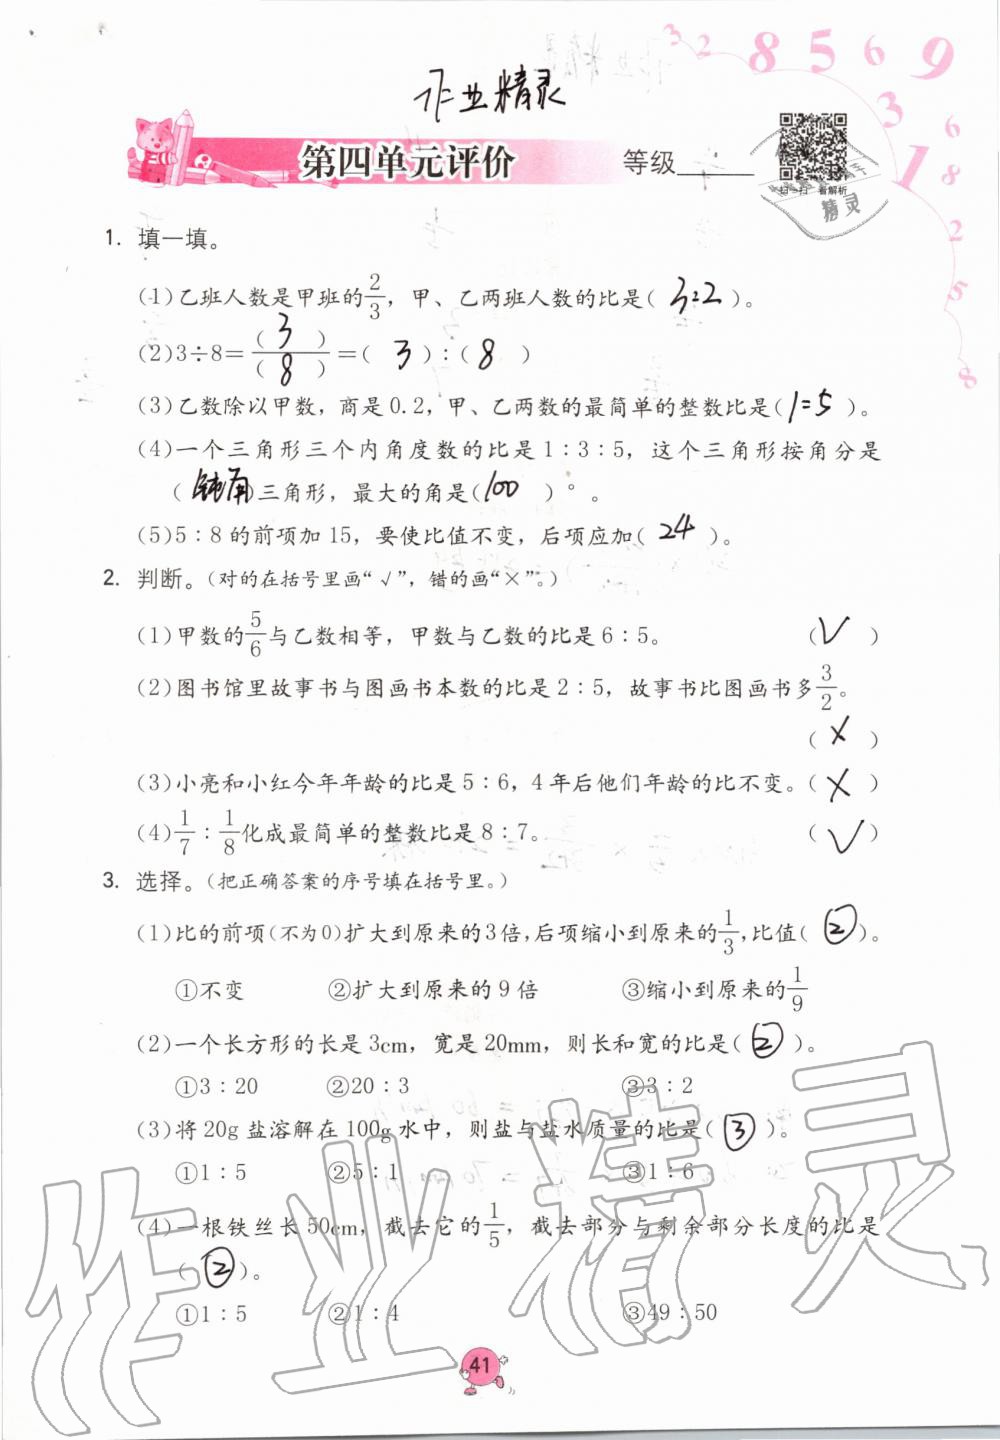 3 2 8 5 6 9
作业精灵
3
6
1
8
2
5
8
第四单元评价 等级______
扫一扫 看解析
精灵
1. 填一填。
(1)乙班人数是甲班的2/3，甲、乙两班人数的比是( 3:2 )。
(2)3÷8=( 3 )/( 8 )=( 3 ):( 8 )
(3)乙数除以甲数，商是0.2，甲、乙两数的最简单的整数比是( 1=5 )。
(4)一个三角形三个内角度数的比是1:3:5，这个三角形按角分是
( 钝角 )三角形，最大的角是( 100 )°。
(5)5:8的前项加15，要使比值不变，后项应加( 24 )。
2. 判断。(对的在括号里画“√”，错的画“×”。)
(1)甲数的5/6与乙数相等，甲数与乙数的比是6:5。 ( √ )
(2)图书馆里故事书与图画书本数的比是2:5，故事书比图画书多3/2。
( × )
(3)小亮和小红今年年龄的比是5:6，4年后他们年龄的比不变。( × )
(4)1/7:1/8化成最简单的整数比是8:7。 ( √ )
3. 选择。(把正确答案的序号填在括号里。)
(1)比的前项(不为0)扩大到原来的3倍，后项缩小到原来的1/3，比值( ② )。
①不变 ②扩大到原来的9倍 ③缩小到原来的1/9
(2)一个长方形的长是3cm，宽是20mm，则长和宽的比是( ② )。
①3:20 ②20:3 ③3:2
(3)将20g盐溶解在100g水中，则盐与盐水质量的比是( ③ )。
①1:5 ②5:1 ③1:6
(4)一根铁丝长50cm，截去它的1/5，截去部分与剩余部分长度的比是
( ② )。
①1:5 ②1:4 ③49:50
作业精灵
41